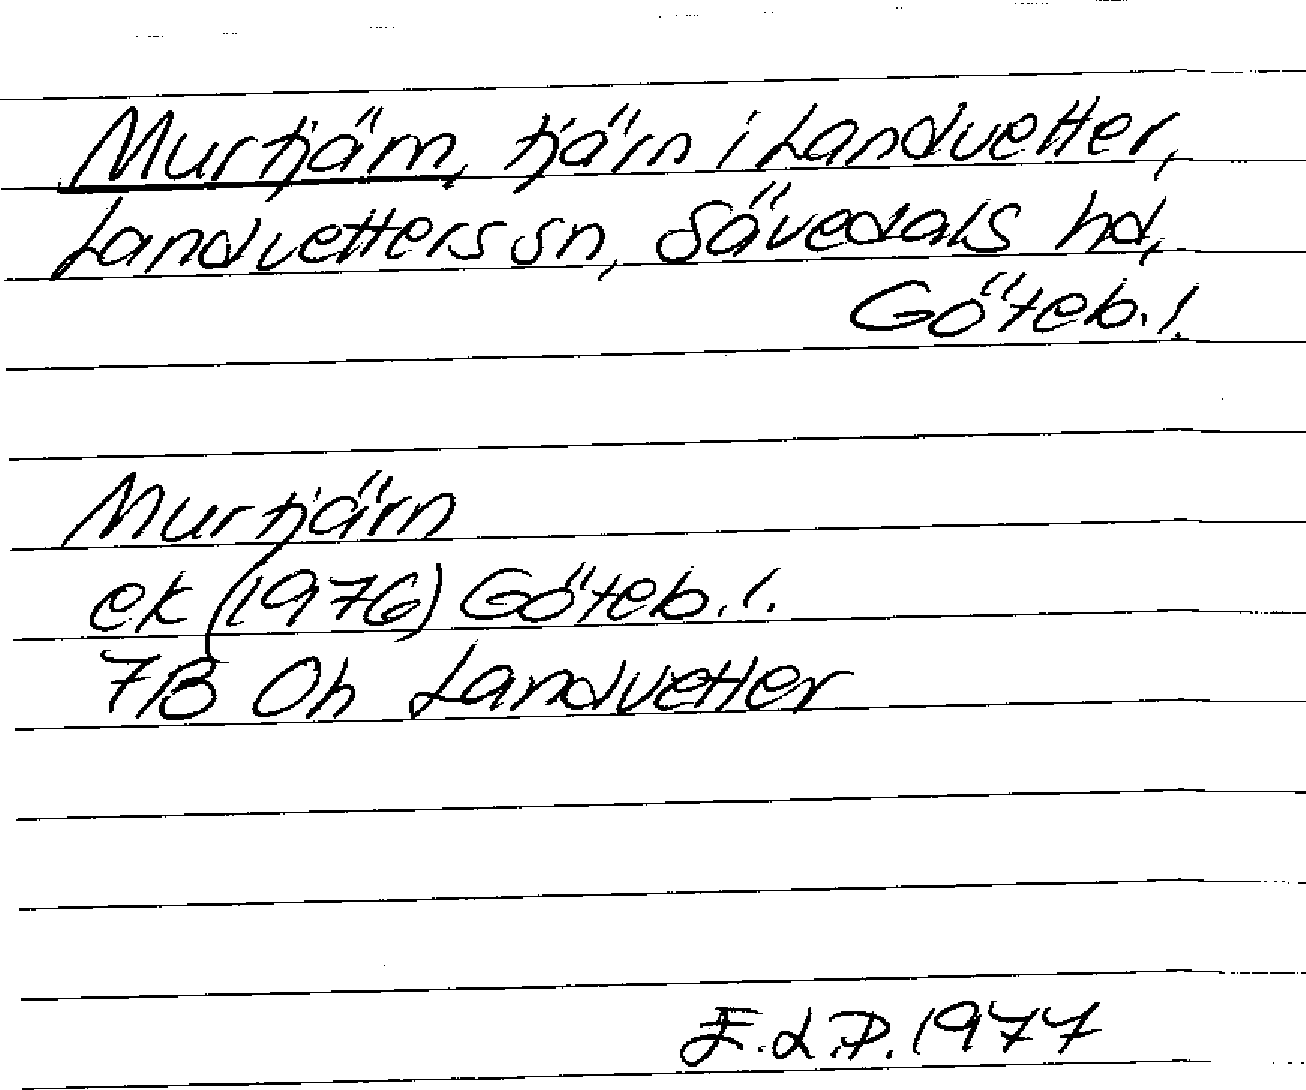 Murtjärn, tjärn i Landvetter,
Landvetters sn, Sävedals hd,
Göteb. l.
Murtjärn
ek (1976) Göteb. l.
7B 0h Landvetter
F.L.P. 1977